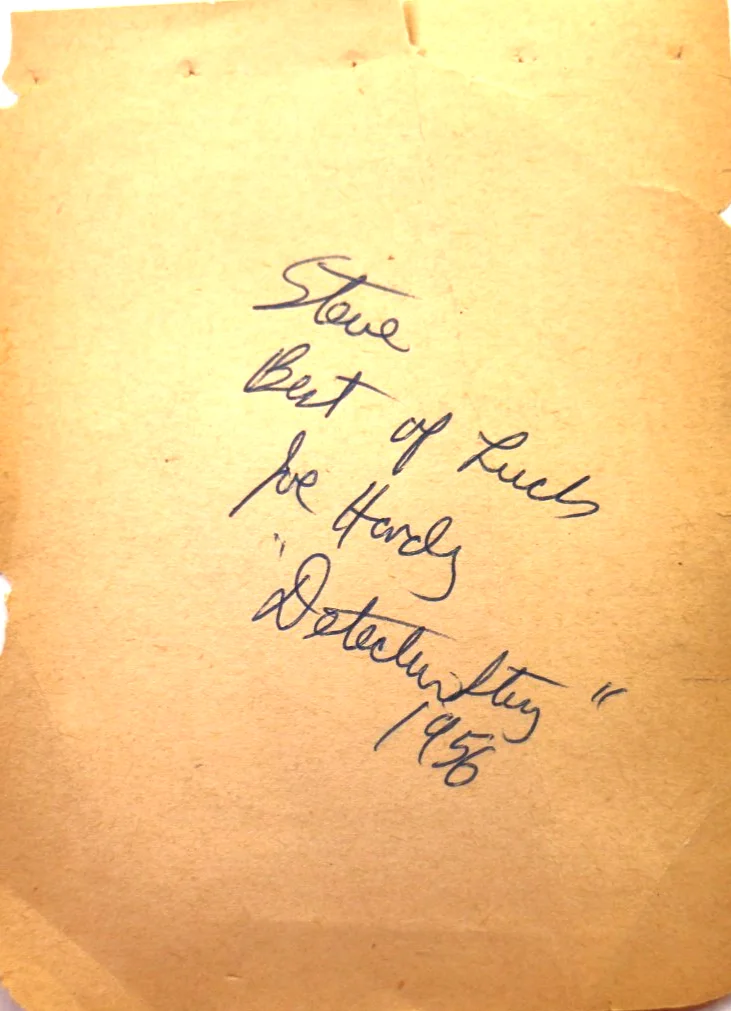 Steve
Best of Luck
Joe Hardy
"Detective Story"
1956